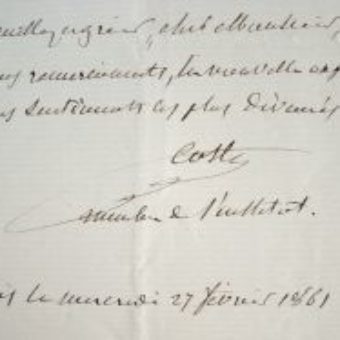 veuillez agréer, cher Monsieur,
mes remerciements, la nouvelle exp
des sentiments les plus dévoués
Coste
membre de l'institut.
is le mercredi 27 février 1861